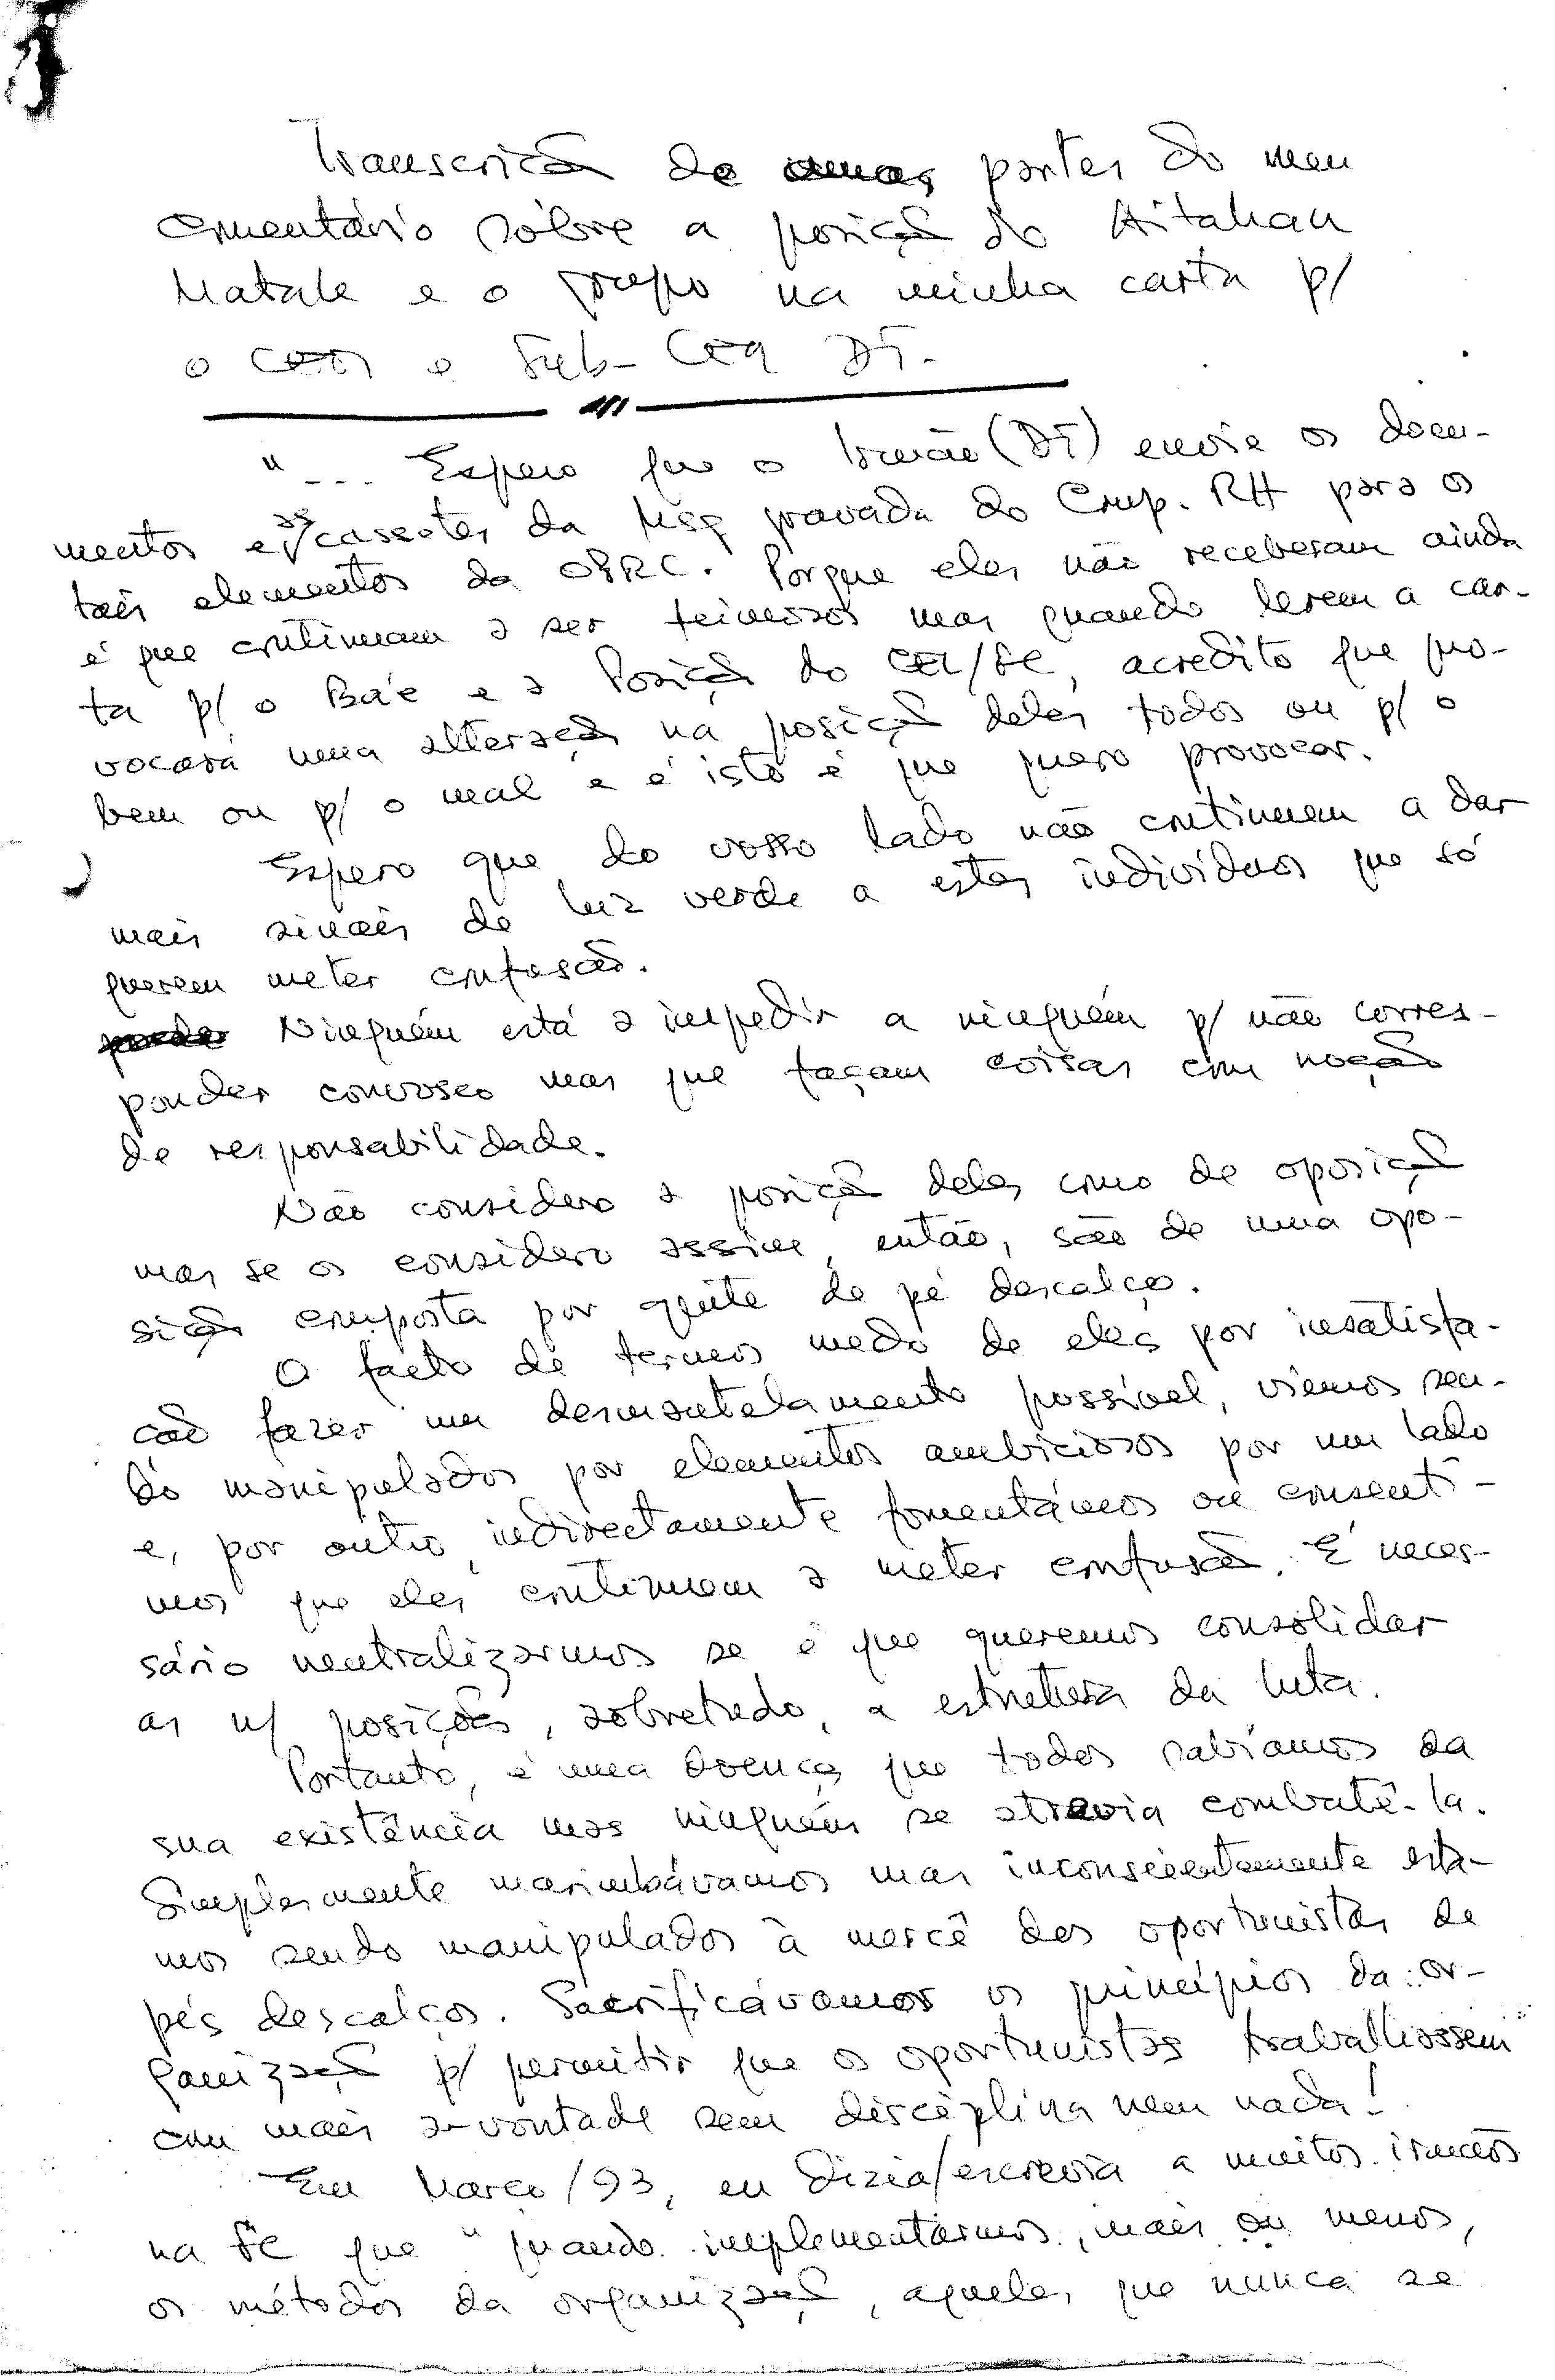 Transcrição de umas partes do meu
comentário sôbre a posição do Aitahan
Matale e o grupo na minha carta p/
o CEQ e Sub-CEQ DT.
"... Espero que o Irmão (DT) envie os docu-
mentos e as cassetes da Msg gravada do Comp. RH para os
tais elementos da OPRC. Porque eles não receberam ainda
é que continuam a ser teimosos mas quando lerem a car-
ta p/ o Baé e a Posição do CEL/FC, acredito que pro-
vocará uma alteração na posição deles todos ou p/ o
bem ou p/ o mal e é isto é que quero provocar.
Espero que do vosso lado não continuem a dar
mais sinais de luz verde a estes individuos que só
querem meter confusão.
Ninguém está a impedir a ninguém p/ não corres-
ponder convosco mas que façam coisas com noção
de responsabilidade.
Não considero a posição deles como de oposição
mas se os considero assim, então, são de uma opo-
sição composta por gente de pé descalço.
O facto de termos medo de eles por insatisfa-
ção fazer um desmantelamento possivel, viemos sen-
do manipulados por elementos ambiciosos por um lado
e, por outro, indirectamente fomentámos ou consenti-
mos que eles continuem a meter confusão. É neces-
sário neutralizarmos se é que queremos consolidar
as n/ posições, sobretudo, a estrutura da luta.
Portanto, é uma doença que todos sabíamos da
sua existência mas ninguém se atrevia combatê-la.
Simplesmente marimbávamos mas inconscientemente esta-
mos sendo manipulados à mercê dos oportunistas de
pés descalços. Sacrificávamos os princípios da or-
ganização p/ permitir que os oportunistas trabalhassem
com mais a-vontade sem disciplina nem nada!
Em Março/93, eu dizia/escrevia a muitos irmãos
na Fé que "quando implementarmos, mais ou menos,
os métodos da organização, aqueles que nunca se